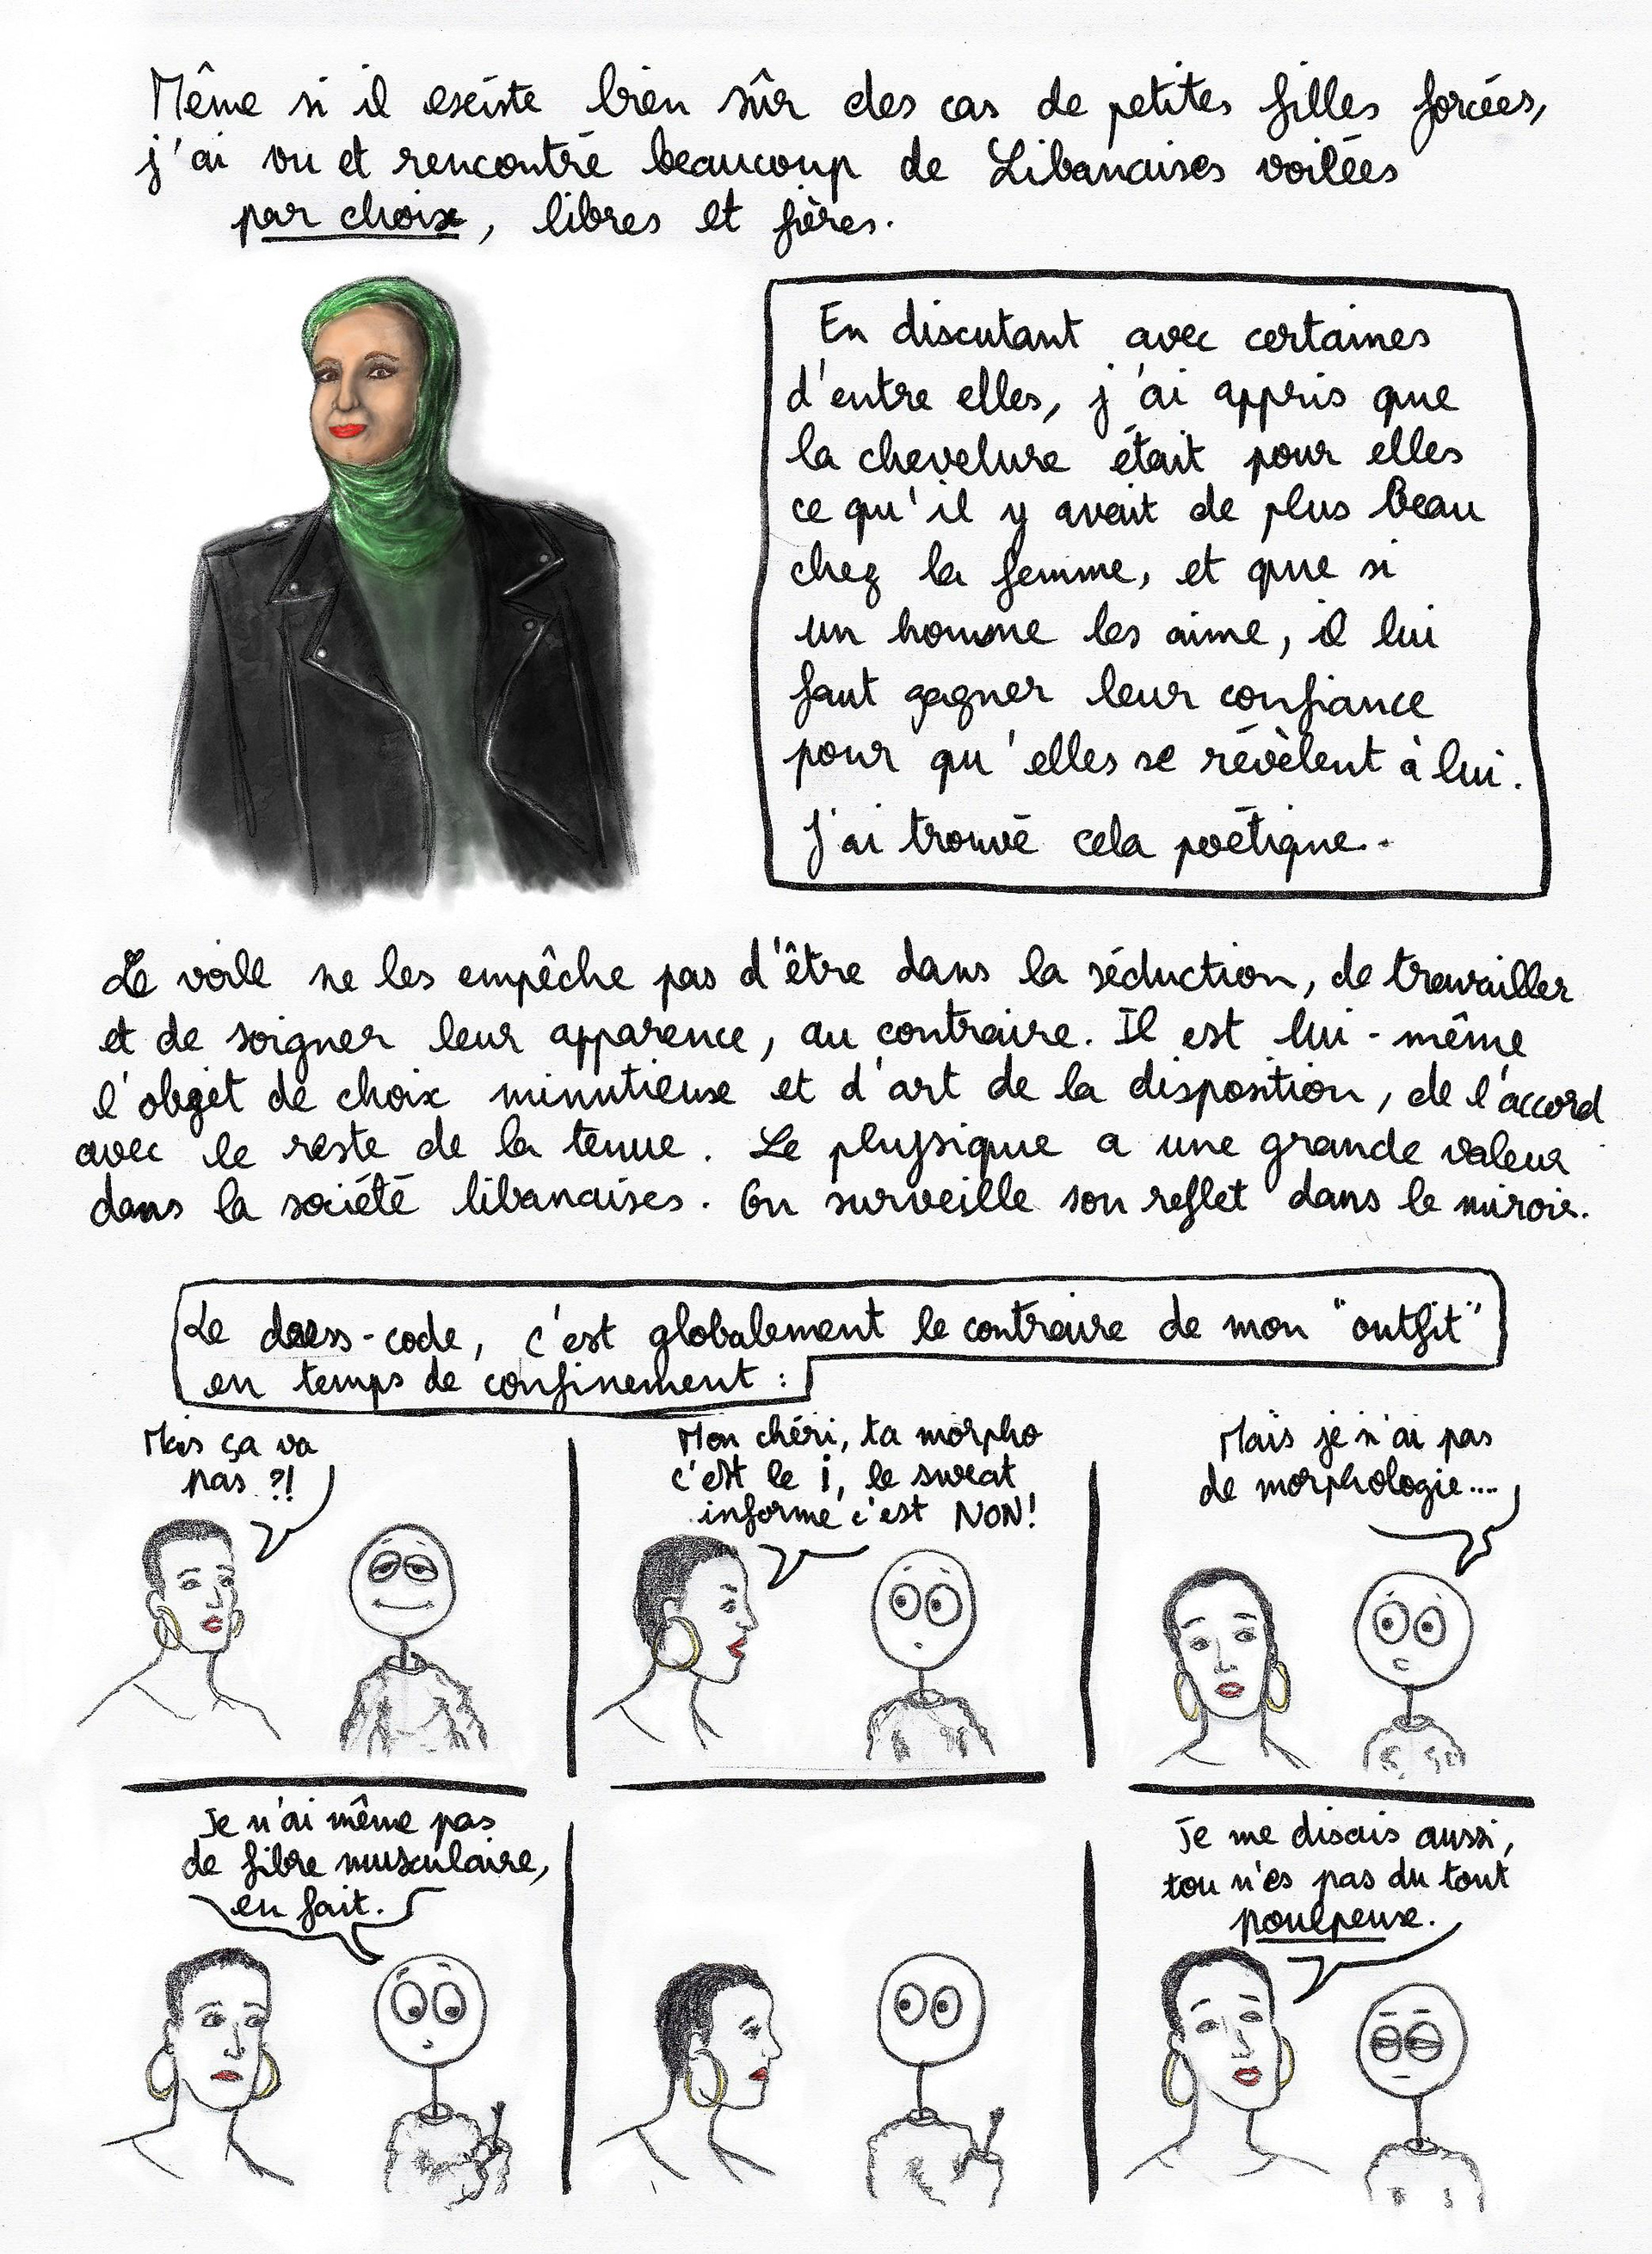 Même si il existe bien sûr des cas de petites filles forcées,
j'ai vu et rencontré beaucoup de Libanaises voilées
par choix, libres et fières.
En discutant avec certaines
d'entre elles, j'ai appris que
la chevelure était pour elles
ce qu'il y avait de plus beau
chez la femme, et que si
un homme les aime, il lui
faut gagner leur confiance
pour qu'elles se révèlent à lui.
J'ai trouvé cela poétique..
Le voile ne les empêche pas d'être dans la séduction, de travailler
et de soigner leur apparence, au contraire. Il est lui-même
l'objet de choix minutieuse et d'art de la disposition, de l'accord
avec le reste de la tenue. Le physique a une grande valeur
dans la société libanaises. On surveille son reflet dans le miroir.
Le dress-code, c'est globalement le contraire de mon "outfit"
en temps de confinement :
Mais ça va
pas ?!
Mon chéri, ta morpho
c'est le i, le sweat
informe c'est NON!
Mais je n'ai pas
de morphologie....
Je n'ai même pas
de fibre musculaire,
en fait.
Je me disais aussi,
tou n'es pas du tout
poulpeuse.